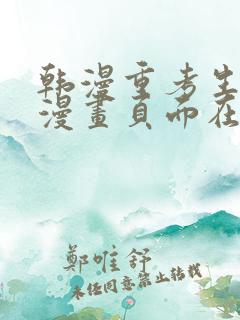 韩漫重考生
漫畫頁面在
鄭惟舒
未经同意禁止转载